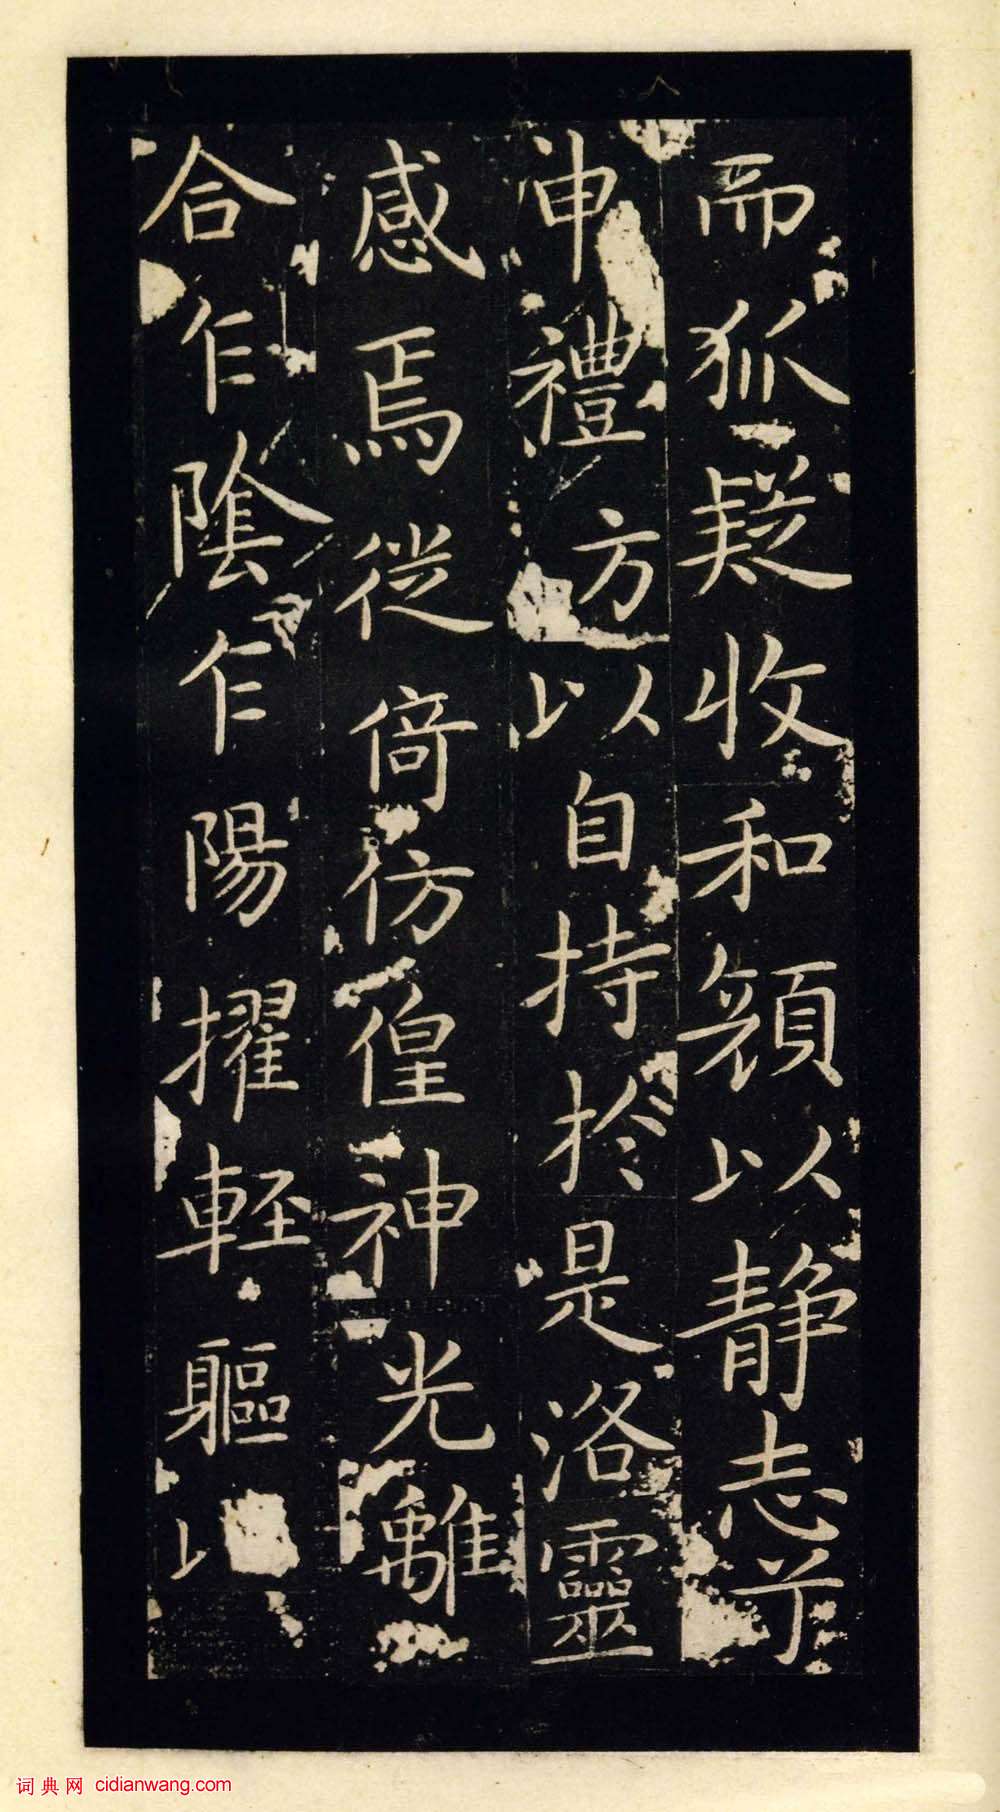 而狐疑收和顔以静志兮
申禮方以自持於是洛靈
感焉徙倚彷徨神光離
合乍陰乍陽擢輕軀以
词典网 cidianwang.com